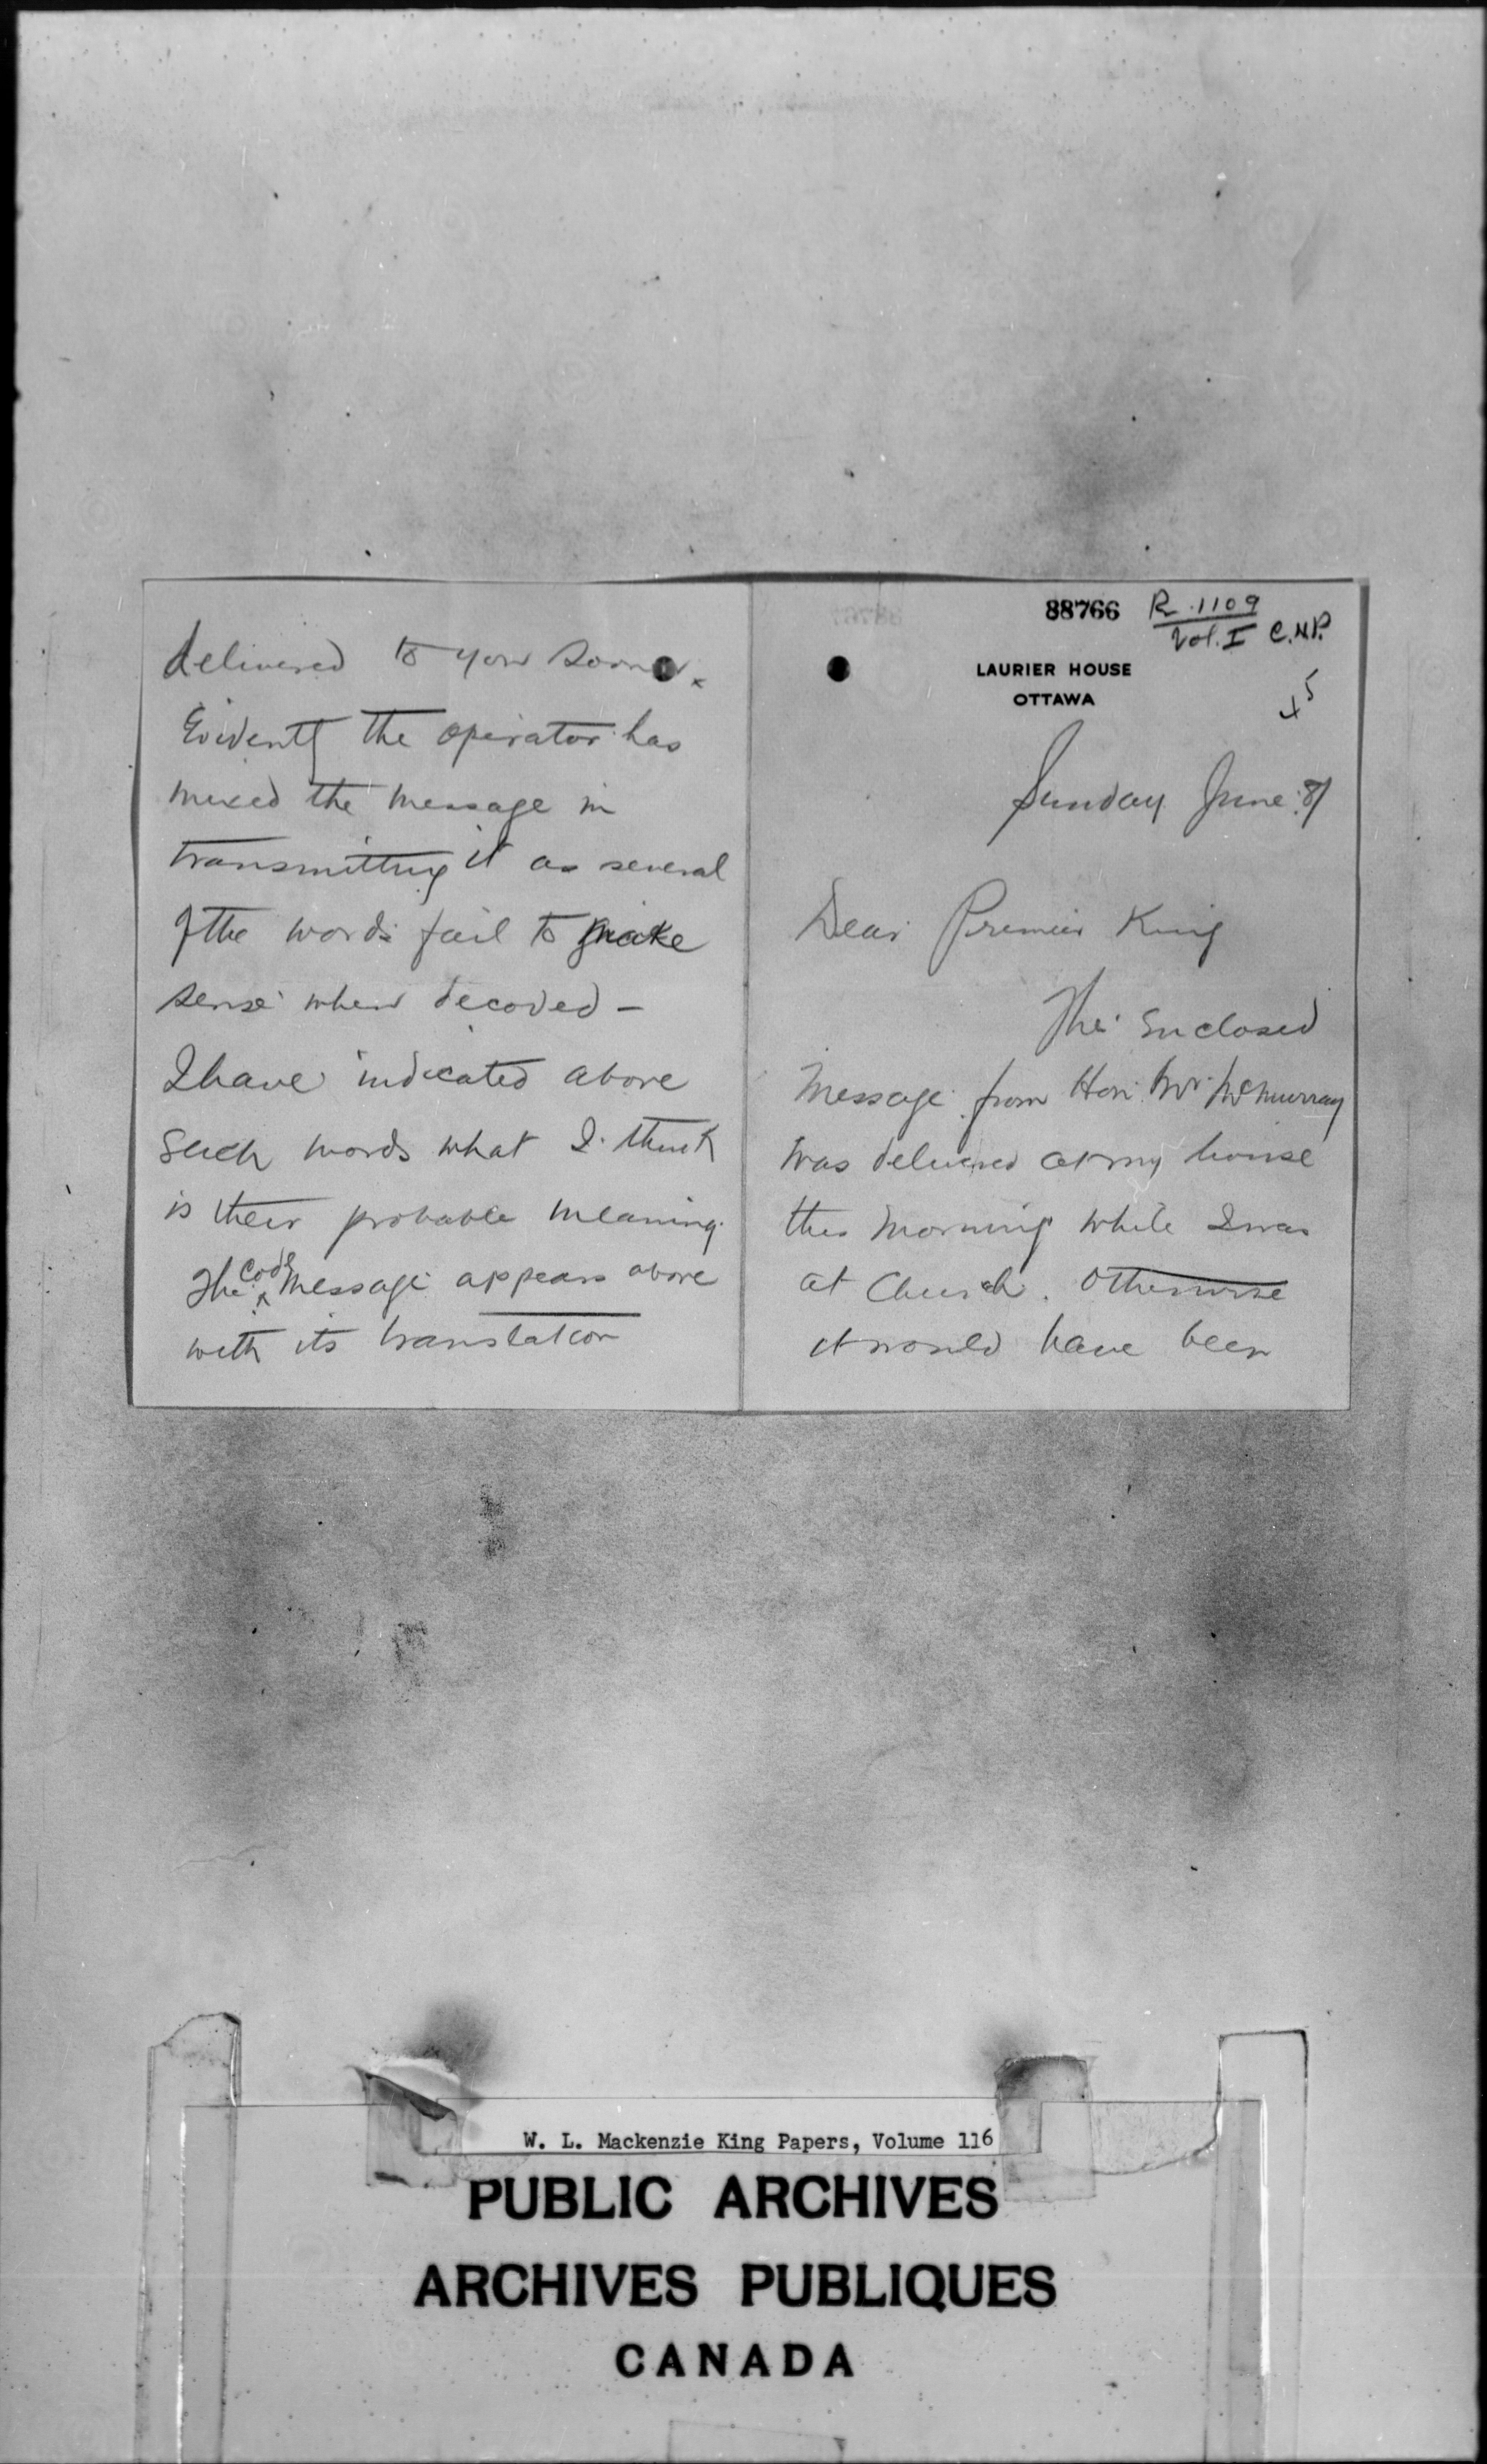 88766 R. 1109
Vol. I C.N.P.
LAURIER HOUSE
OTTAWA
Sunday June 8/
Dear Premier King
The enclosed
message from Hon. Mr. McMurray
was delivered at my house
this morning while I was
at Church. Otherwise
it would have been
delivered to you sooner.
Evidently the operator has
mixed the message in
transmitting it as several
of the words fail to make
sense when decoded —
I have indicated above
such words what I think
is their probable meaning.
The code message appears above
with its translation
W. L. Mackenzie King Papers, Volume 116
PUBLIC ARCHIVES
ARCHIVES PUBLIQUES
CANADA